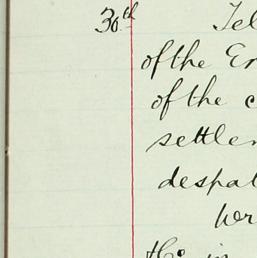 30th Tel
of the Er
of the c
settlem
despat
her
this in